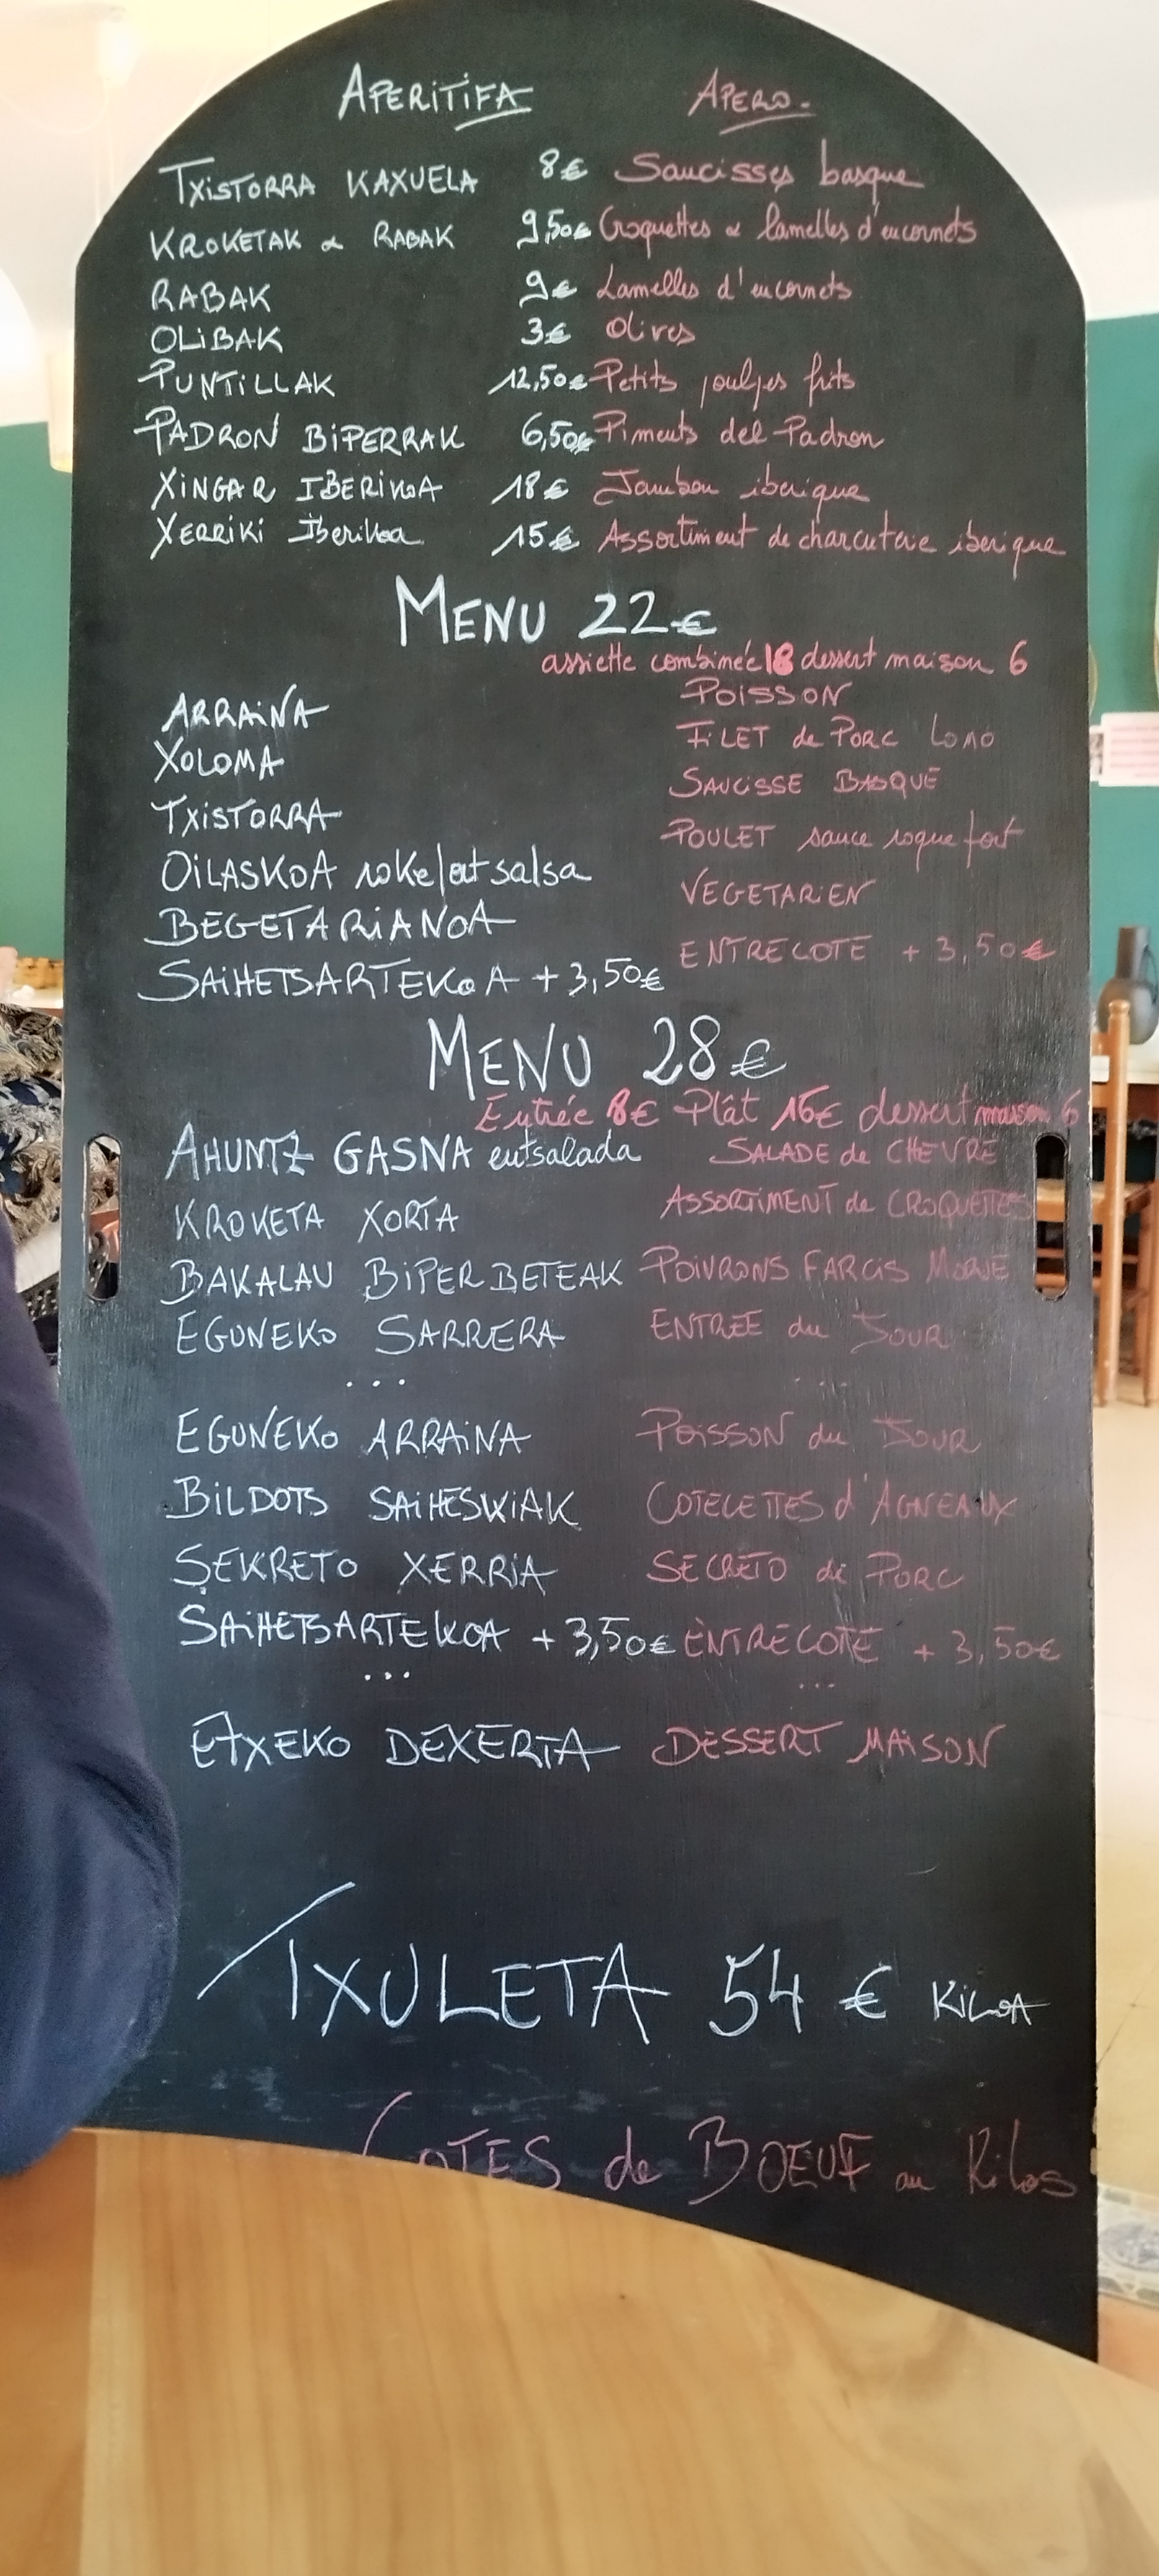 APERITIFA APERO.
TXISTORRA KAXUELA 8€ Saucisses basque
KROKETAK & RABAK 9,50€ Croquettes & lamelles d'encornets
RABAK 9€ Lamelles d'encornets
OLIBAK 3€ Olives
PUNTILLAK 12,50€ Petits poulpes frits
PADRON BIPERRAK 6,50€ Piments del Padron
XINGAR IBERIKOA 18€ Jambon iberique
XERRIKI Iberikoa 15€ Assortiment de charcuterie iberique
MENU 22€
assiette combinée 18 dessert maison 6
ARRAINA POISSON
XOLOMA FILET de PORC LOMO
TXISTORRA SAUCISSE BASQUE
OILASKOA rokefort salsa POULET sauce roquefort
BEGETARIANOA VEGETARIEN
SAIHETSARTEKOA + 3,50€ ENTRECOTE + 3,50€
MENU 28€
Entrée 8€ Plât 16€ dessert maison 6
AHUNTZ GASNA entsalada SALADE de CHEVRE
KROKETA XORTA ASSORTIMENT de CROQUETTES
BAKALAU BIPER BETEAK POIVRONS FARCIS MORUE
EGUNEKO SARRERA ENTREE du JOUR
... ...
EGUNEKO ARRAINA POISSON du JOUR
BILDOTS SAIHESKIAK COTELETTES d'AGNEAUX
SEKRETO XERRIA SECRETO de PORC
SAIHETSARTEKOA + 3,50€ ENTRECOTE + 3,50€
... ...
ETXEKO DEXERTA DESSERT MAISON
TXULETA 54 € KILOA
COTES de BOEUF au Kilos